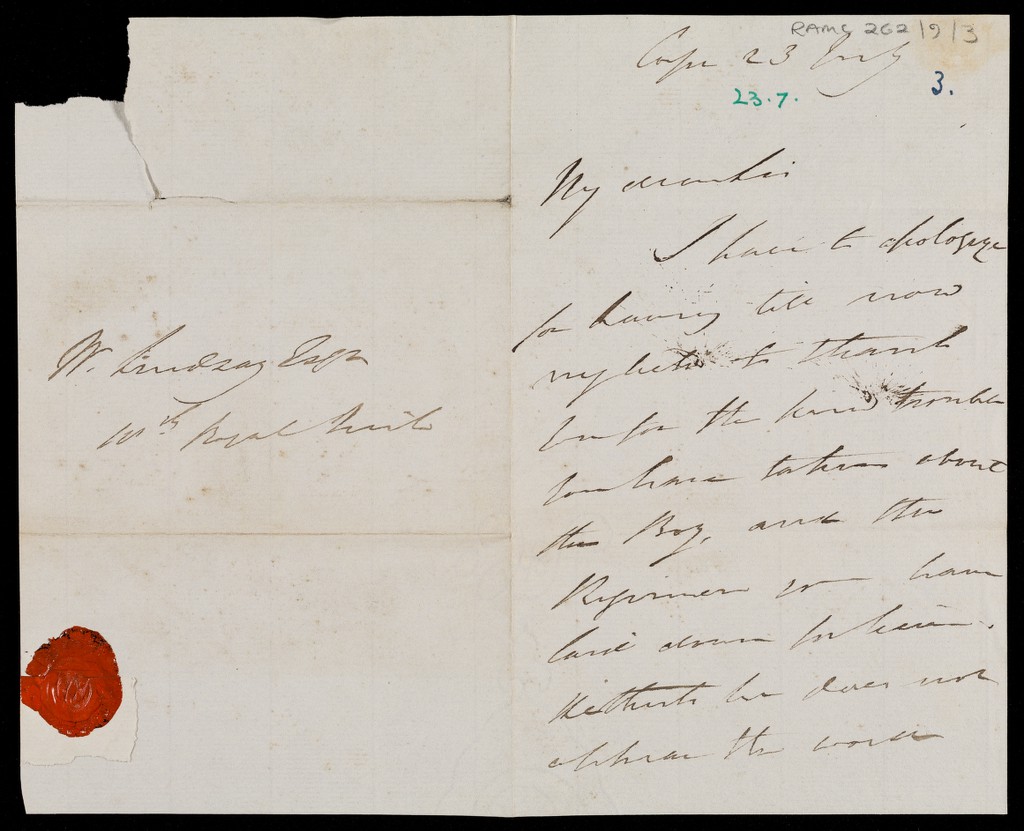 W. Lindsay Esqr
10th Royal
RAMC 262/9/3
Cape 23 July
23.7.
3.
My dear Sir
I have to apologize
for having till now
neglected to thank
you for the kind trouble
you have taken about
the Boy, and the
Regimen you have
laid down for him.
he does not
appear the worse